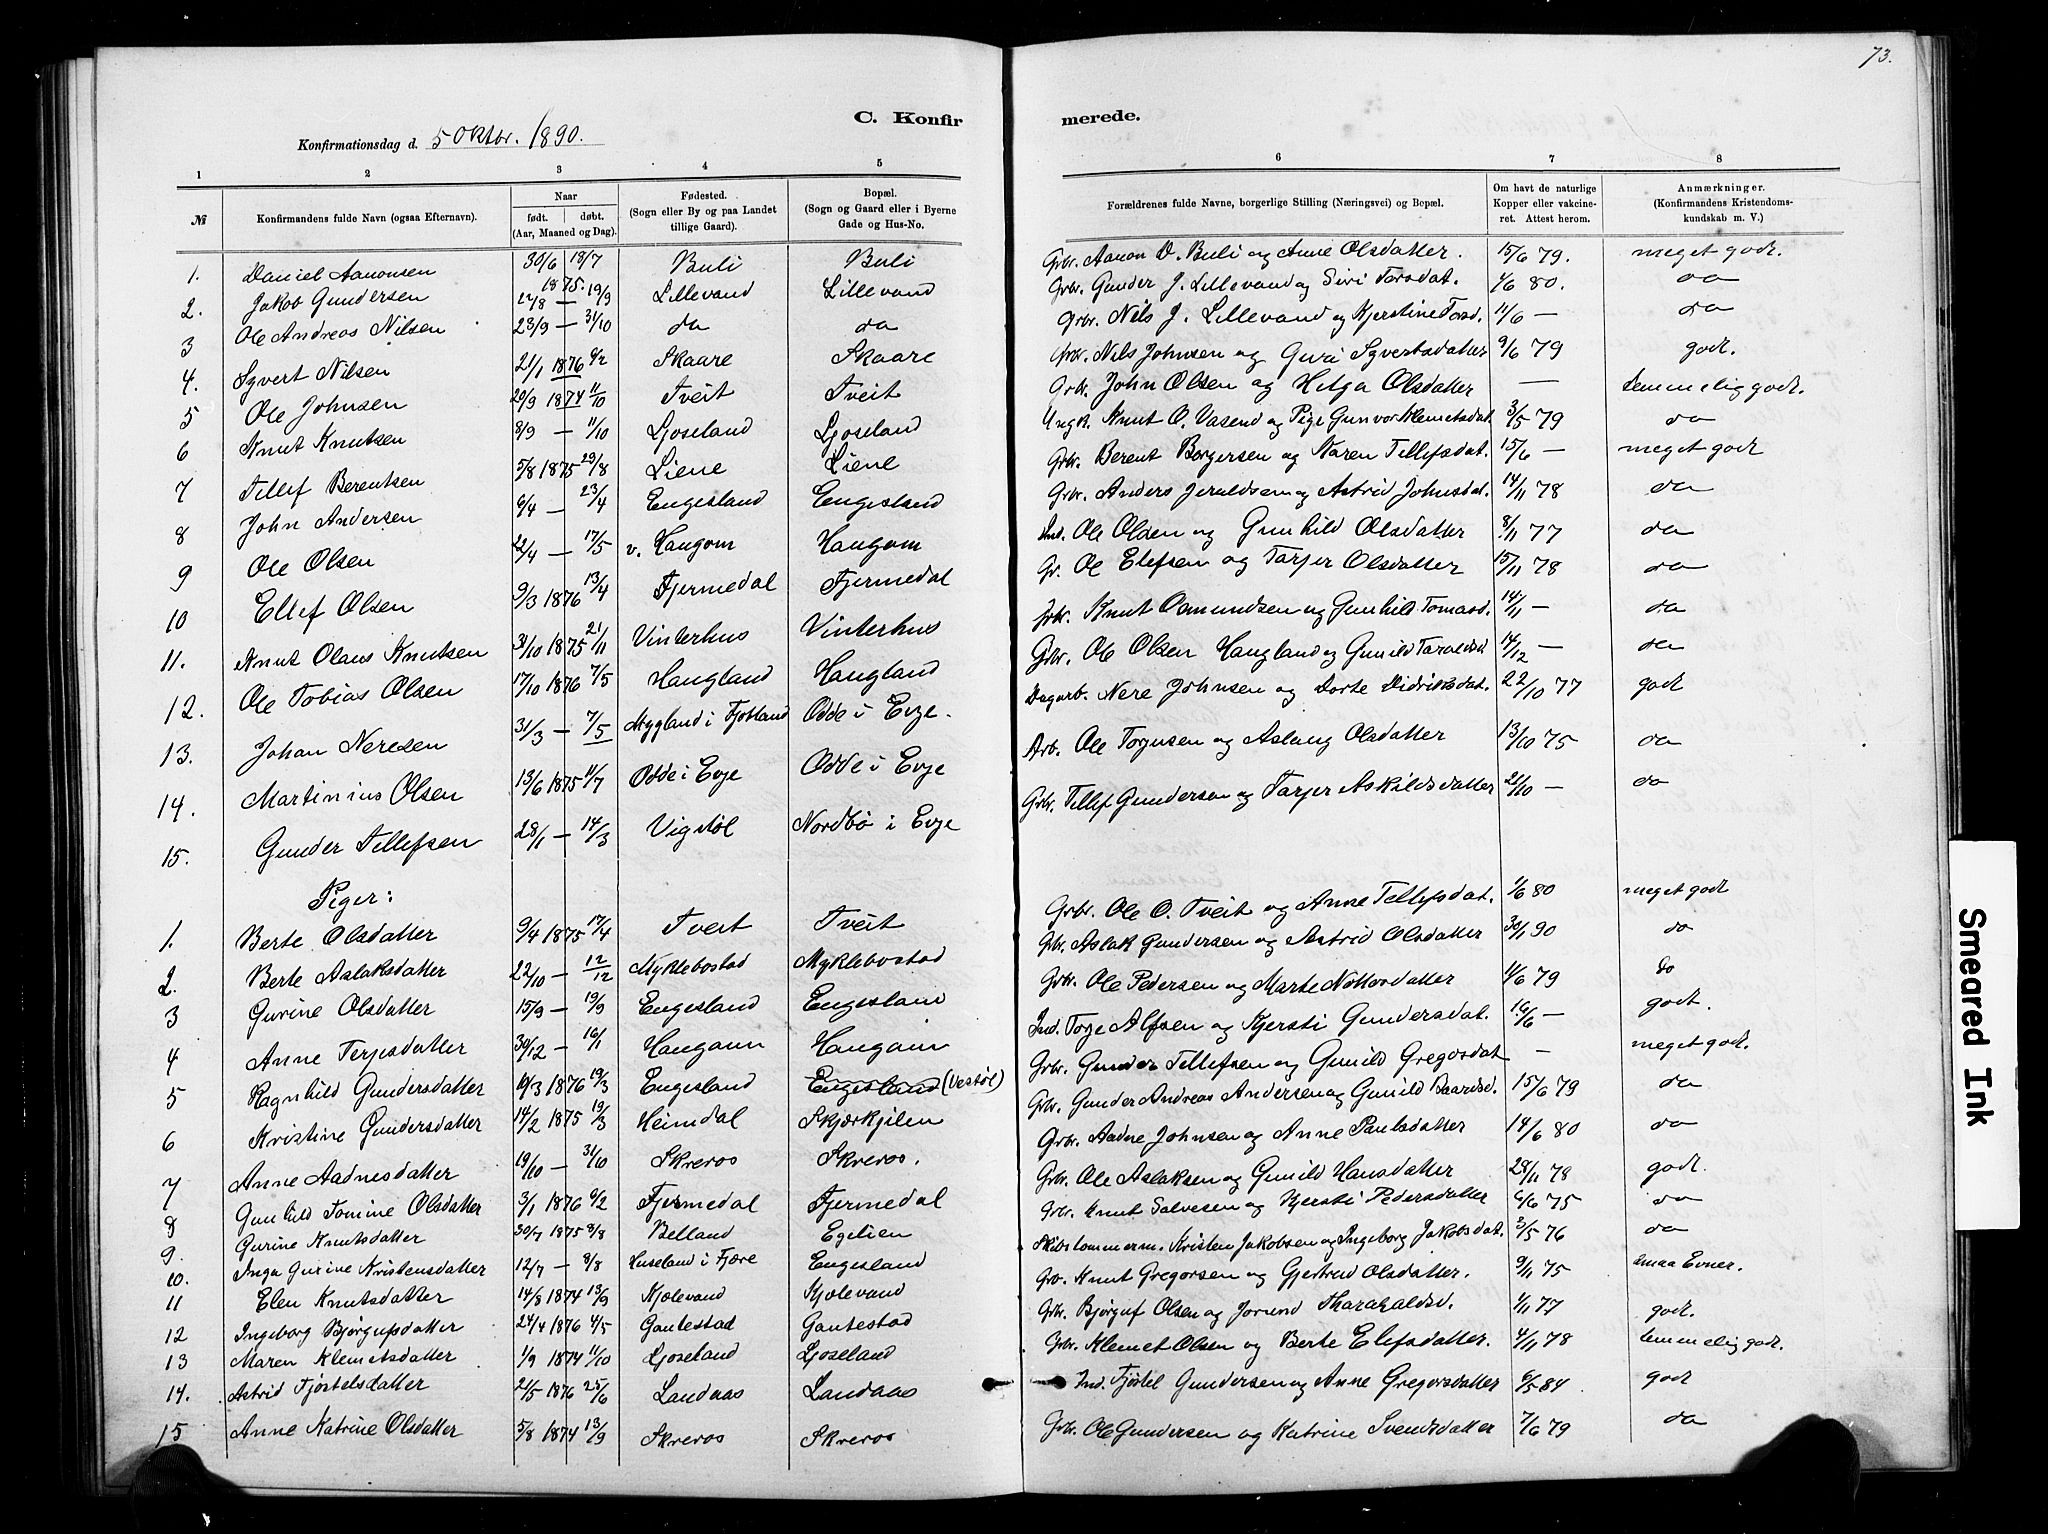 73.
C. Konfirmerede.
Konfirmationsdag d. 5 Oktbr. 1890.
1 2 3 4 5 6 7 8
№ Konfirmandens fulde Navn (ogsaa Efternavn). Naar født. døbt. (Aar, Maaned og Dag). Fødested. (Sogn eller By og paa Landet tillige Gaard). Bopæl. (Sogn og Gaard eller i Byerne Gade og Hus-No. Forældrenes fulde Navne, borgerlige Stilling (Næringsvei) og Bopæl. Om havt de naturlige Kopper eller vakcineret. Attest herom. Anmærkninger. (Konfirmandens Kristendomskundskab m. V.)
1. Daniel Aanonsen 30/6 1875. 18/7 Buli Buli Grbr. Aanon D. Buli og Anne Olsdatter. 15/6 79. meget godt.
2. Jakob Gundersen 27/8 — 19/9 Lillevand Lillevand Grbr. Gunder J. Lillevand og Siri Torsdat. 1/6 80. do
3 Ole Andreas Nilsen 23/9 — 31/10 do do Grbr. Nils J. Lillevand og Kjerstine Torsd. 11/6 — do
4. Syvert Nilsen 21/1 1876 6/2 Skaare Skaare Grbr. Nils Johnsen og Guri Syvertsdatter 9/6 79 godt.
5 Ole Johnsen 20/9 1874 11/10 Tveit Tveit Grbr. John Olsen og Helga Olsdatter — temmelig godt.
6 Knut Knutsen 8/9 — 11/10 Ljoseland Ljoseland Ungk. Knut O. Vasend og Pige Gunvor Klemetsdat. 3/5 79 do
7 Tellef Berentsen 5/8 1875 29/8 Liene Liene Grbr. Berent Borgersen og Karen Tellefsdat. 15/6 — meget godt
8 John Andersen 6/4 — 23/4 Engesland Engesland Grbr. Anders Jeraldsen og Astrid Johnsdat. 14/11 78 do
9 Ole Olsen 22/4 — 17/5 v. Haugom Haugom Ind. Ole Olsen og Gunhild Olsdatter 8/11 77 do
10 Ellef Olsen 9/3 1876 13/4 Fjermedal Fjermedal Gr. Ole Elefsen og Tarjer Olsdatter 15/11 78 do
11. Knut Olaus Knutsen 31/10 1875 21/11 Vinterhus Vinterhus Grbr. Knut Osmundsen og Gunhild Tomasd. 14/11 — do
12. Ole Tobias Olsen 17/10 1876 7/5 Haugland Haugland Grbr. Ole Olsen Haugland og Gunild Taraldsd 14/12 — do
13. Johan Neresen 31/3 — 7/5 Mygland i Fjotland Odde i Evje. Dagarb. Nere Johnsen og Dorte Didriksdat. 22/10 77 godt
14. Martinius Olsen 13/6 1875 11/7 Odde i Evje Odde i Evje Arb. Ole Torgusen og Aslaug Olsdatter 13/10 75 do
15. Gunder Tellefsen 28/1 — 14/3 Vigstøl Nordbø i Evje Grbr. Tellef Gunderson og Tarjer Askildsdatter 21/10 — do
Piger:
1. Berte Olsdatter 9/4 1875 17/4 Tveit Tveit Grbr. Ole O. Tveit og Anne Tellefsdat. 1/6 80 meget godt
2. Berte Aslaksdatter 22/10 — 12/12 Myklebostad Myklebostad Grbr. Aslak Gundersen og Astrid Olsdatter 30/1 90 do
3 Gurine Olsdatter 15/9 — 19/9 Engesland Engesland Grbr. Ole Pedersen og Marte Nottovdatter 11/6 79 do
4 Anne Terjesdatter 30/12 — 16/1 Haugann Haugann Ind. Torje Alfsen og Kjersti Gundersdat. 16/6 — godt.
5 Ragnhild Gundersdatter 10/3 1876 19/3 Engesland Engesland (Vestøl) Grbr. Gunder Tellefsen og Gunild Gregorsdat — meget godt.
6 Kristine Gundersdatter 14/2 1875 19/3 Heimdal Skjærkjilen Grbr. Gunder Andreas Andersen og Gunild Baardsd. 15/6 79 do
7 Anne Aadnesdatter 19/10 — 31/10 Skreros Skreros. Grbr. Aadne Johnsen og Anne Paulsdatter 14/6 80 do
8 Gunhild Tomine Olsdatter 3/1 1876 6/2 Fjermedal Fjermedal Grbr. Ole Aslaksen og Gunild Hansdatter 28/11 78 godt.
9. Gurine Knutsdatter 30/7 1875 8/8 Belland Egelien Grbr. Knut Salvesen og Kjersti Pedersdatter 6/6 75 do
10. Inga Gurine Kristensdatter 12/7 — 8/8 Huseland i Fjære Engesland Skibstømmerm. Kristen Jakobsen og Ingeborg Jakobsdat. 3/5 76 do
11 Elen Knutsdatter 14/8 1874 13/9 Kjølevand Kjølevand Grb. Knut Gregorsen og Gjertrud Olsdatter. 9/11 75 smaa Evner.
12 Ingeborg Bjørgufsdatter 24/4 1876 4/5 Gautestad Gautestad Grbr. Bjørguf Olsen og Jorund Tharaldsd. 1/11 77 godt.
13 Maren Klemetsdatter 1/9 1874 11/10 Ljoseland Ljoseland Grbr. Klemet Olsen og Berte Elefsdatter. 4/11 78 temmelig godt.
14. Astrid Fjøstelsdatter 21/5 1876 25/6 Landaas Landaas Ind. Fjøstel Gundersen og Anne Gregorsdatter 6/5 84. godt
15 Anne Katrine Olsdatter 5/8 1874 13/9 Skreros Skreros Grbr. Ole Gundersen og Katrine Svendsdatter 7/6 79 do
Smeared Ink